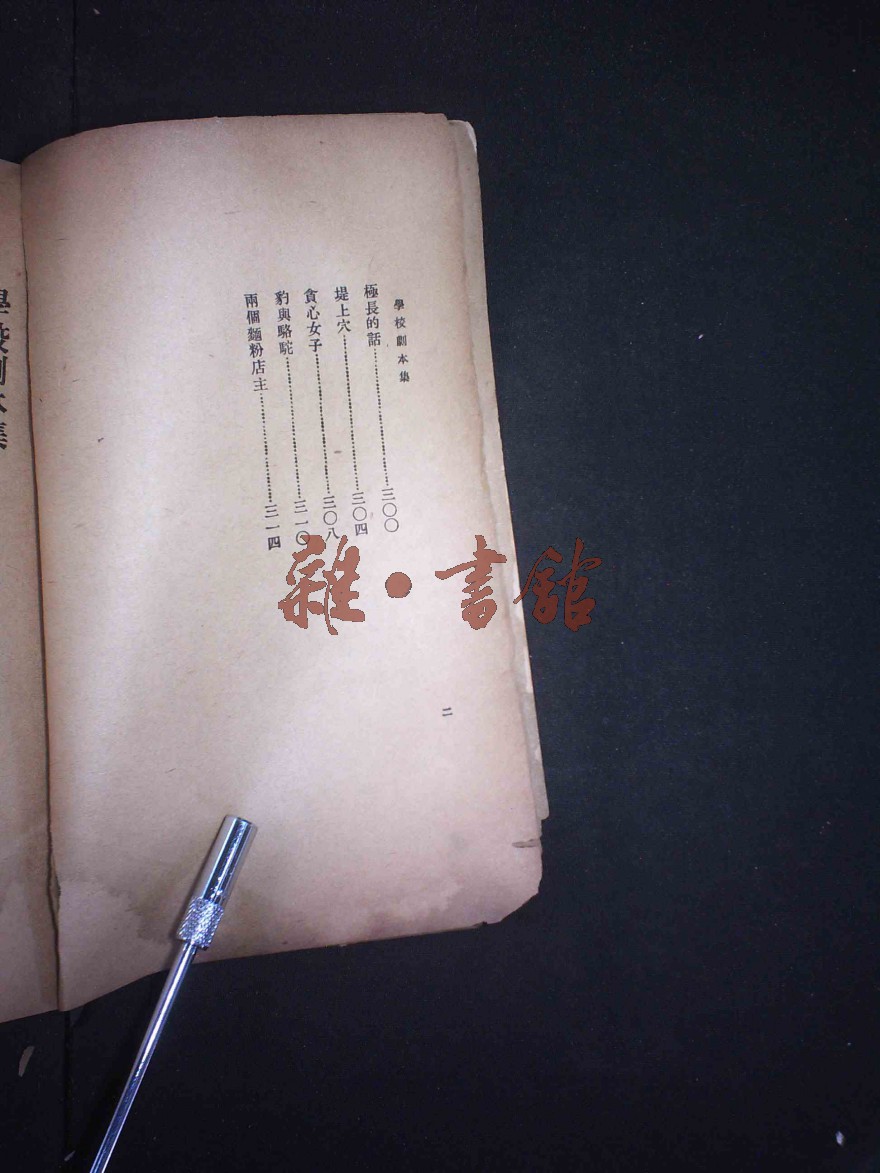 學校劇本集
極長的話……三〇〇
堤上穴……三〇四
貪心女子……三〇八
豹與駱駝……三一〇
兩個麵粉店主……三一四
二
學校劇本集
雜•書館